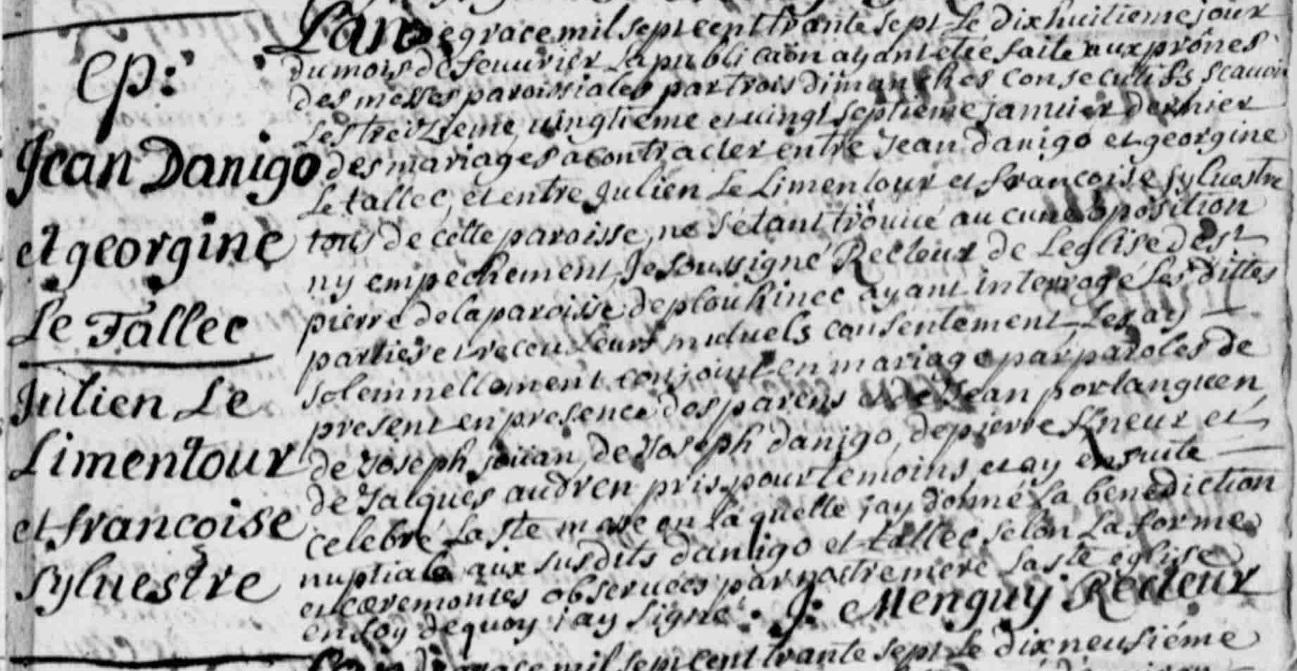 Ep:
Jean Danigo
et georgine
Le Tallec
Julien Le
Limentour
et francoise
sylvestre
Lan de grace mil sept cent trante sept Le dix huitieme jour
du mois de feuvrier La publicaon ayant etée faite aux prônes
des messes paroissiales par trois dimanches consecutifs scauoir
les treizieme uingtieme et uingt septieme januier dernier
des mariages a contracter entre Jean danigo et georgine
Le tallec, et entre Julien Le Limentour et francoise syluestre
tous de cette paroisse, ne s'etant trouué aucune oposition
ny empechement, Je soussigné Recteur de Leglise de st
pierre de la paroisse de plouhinec ayant interrogé les dittes
parties et receu leurs mutuels consentement Les ay
solemnellement conjoint en mariage par paroles de
present en presence des parens et de Jean porlanguen
de Joseph jouan, de Joseph danigo, de pierre et
de Jacques audren pris pour temoins, et ay ensuite
celebré La ste messe en la quelle jay donné La benediction
nuptiale aux susdits danigo et tallec selon La forme
et cæremonies obseruées par nostre mere La ste eglise
en foy de quoy jay signé. J: Menguy Recteur
Lan de grace mil sept cent trante sept Le dix neufiéme